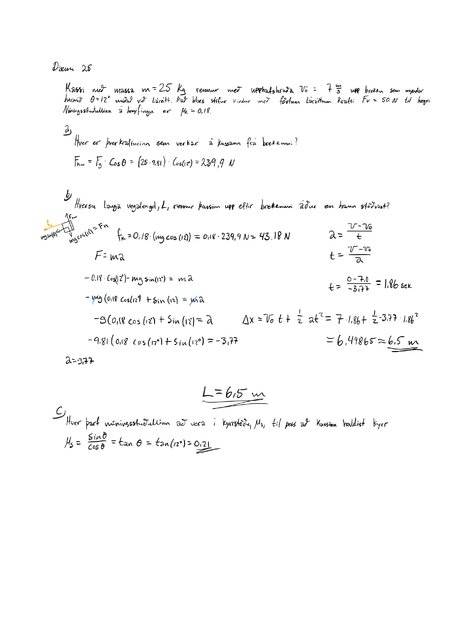 Dæmi 25
Kassi með massa m = 25 kg rennur með upphafshraða V₀ = 7 m/s upp brekku sem myndar
hornið θ = 12° miðað við lárétt. Það blæs stífur vindur með föstum láréttum krafti Fv = 50 N til hægri
Núningsstuðullinn á
er μk = 0.18
a)
Hver er þverkrafturinn sem verkar á kassann frá brekkunni?
Fn = Fg · Cosθ = (25 · 9.81) · Cos(12°) = 239,9 N
b)
Hversu langa vegalengd, L, rennur kassinn upp eftir brekkunni áður en hann stöðvast?
mg cos(12) = Fn
fk = 0.18 · (mg cos(12)) = 0.18 · 239,9 N = 43.18 N
a = V - V₀ / t
F = ma
t = V - V₀ / a
-mg sin(12°) = ma
t = 0 - 7.0 / -3.77 = 1.86 sek
-mg(0.18 cos(12°) + sin(12) = ma
-g(0.18 cos(12°) + Sin(12°) = a
Δx = V₀ t + 1/2 at² = 7 · 1.86 + 1/2 · -3.77 · 1.86²
-9.81(0.18 cos(12°) + Sin(12°) = -3,77
= 6.49865 = 6.5 m
L = 6,5 m
C)
Hver þarf núningsstuðullinn að vera í kyrrstöðu, μs, til þess að kassinn haldist kyrr
μs = sinθ / cosθ = tan θ = tan(12°) = 0.21